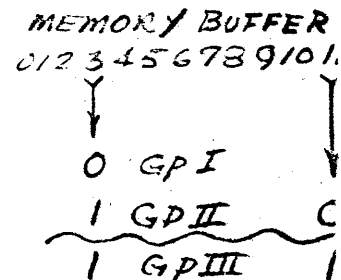 MEMORY BUFFER
0 1 2 3 4 5 6 7 8 9 10 1
0 GP I
1 GP II 0
1 GP III 1